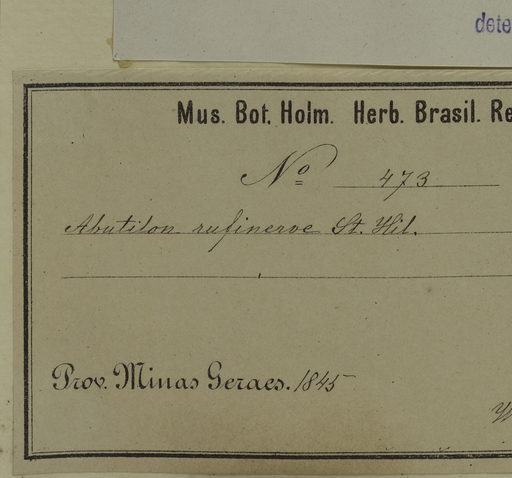 dete
Mus. Bot. Holm. Herb. Brasil. Re
No 473
Abutilon rufinerve St. Hil.
Prov. Minas Geraes. 1845